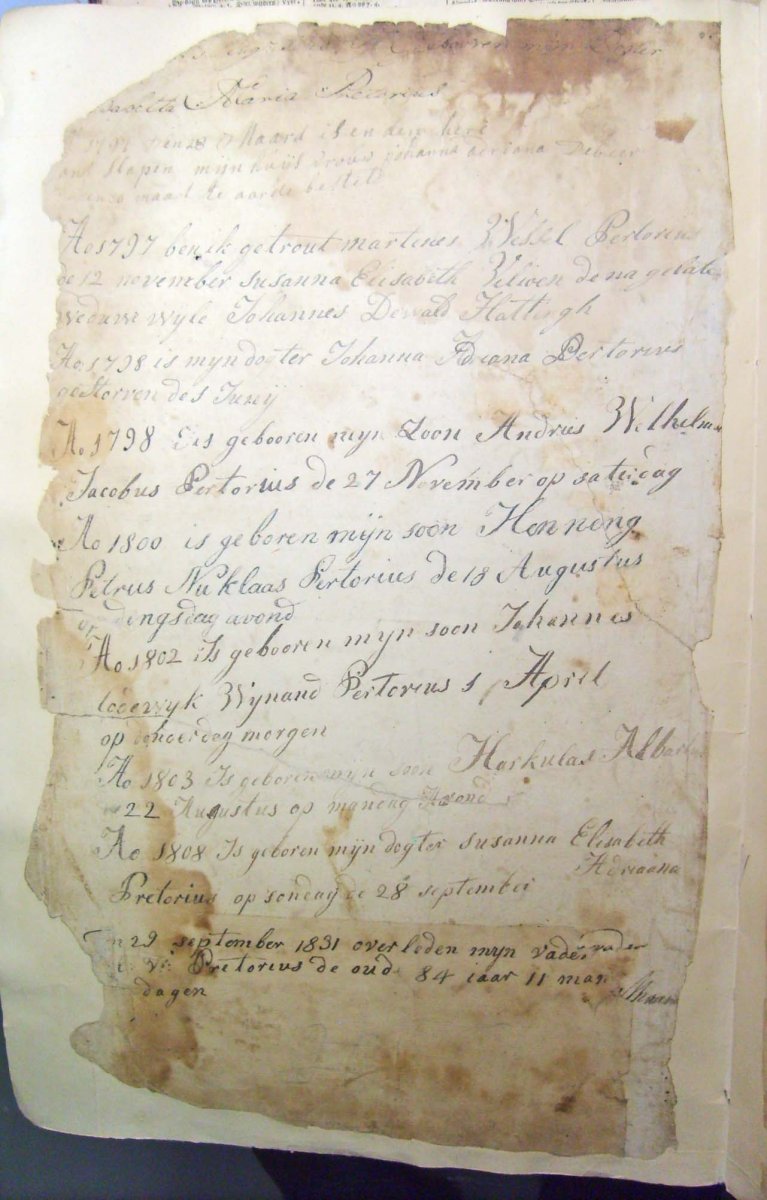 gebooren mijn Dogter
Maria Pretorius
den 28 Maard is in den here
ont slapen mijn huijs vrouw johanna adriana Debeer
maart te aarde bestelt
Ao 1797 ben ik getrout martenes Wessel Pertorius
de 12 november susanna Elisabeth Viliven de na gelaten
weduwe wyle Johannes Dewald Hattingh
Ao 1798 is myn dogter Johanna Adreana Pertorius
gestorven de 5 Junij
Ao 1798 Is gebooren myn Zoon Andries Welhelmus
Jacobus Pertorius de 27 November op saterdag
Ao 1800 is geboren mijn soon Hennong
Petrus Nuklaas Pertorius de 18 Augustus
op dingsdag avond
Ao 1802 is geboren myn soon Johannes
lodewyk Wynand Pertorius 1 April
op donderdag morgen
Ao 1803 Is geboren myn soon Harkulas Albartus
22 Augustus op mandag Avond
Ao 1808 Is geboren mijn dogter susanna Elisabeth
Adriaana
Pretorius op sondag de 28 september
29 september 1831 overleden myn vader
Pretorius de oud 84 jaar 11 maan
dagen